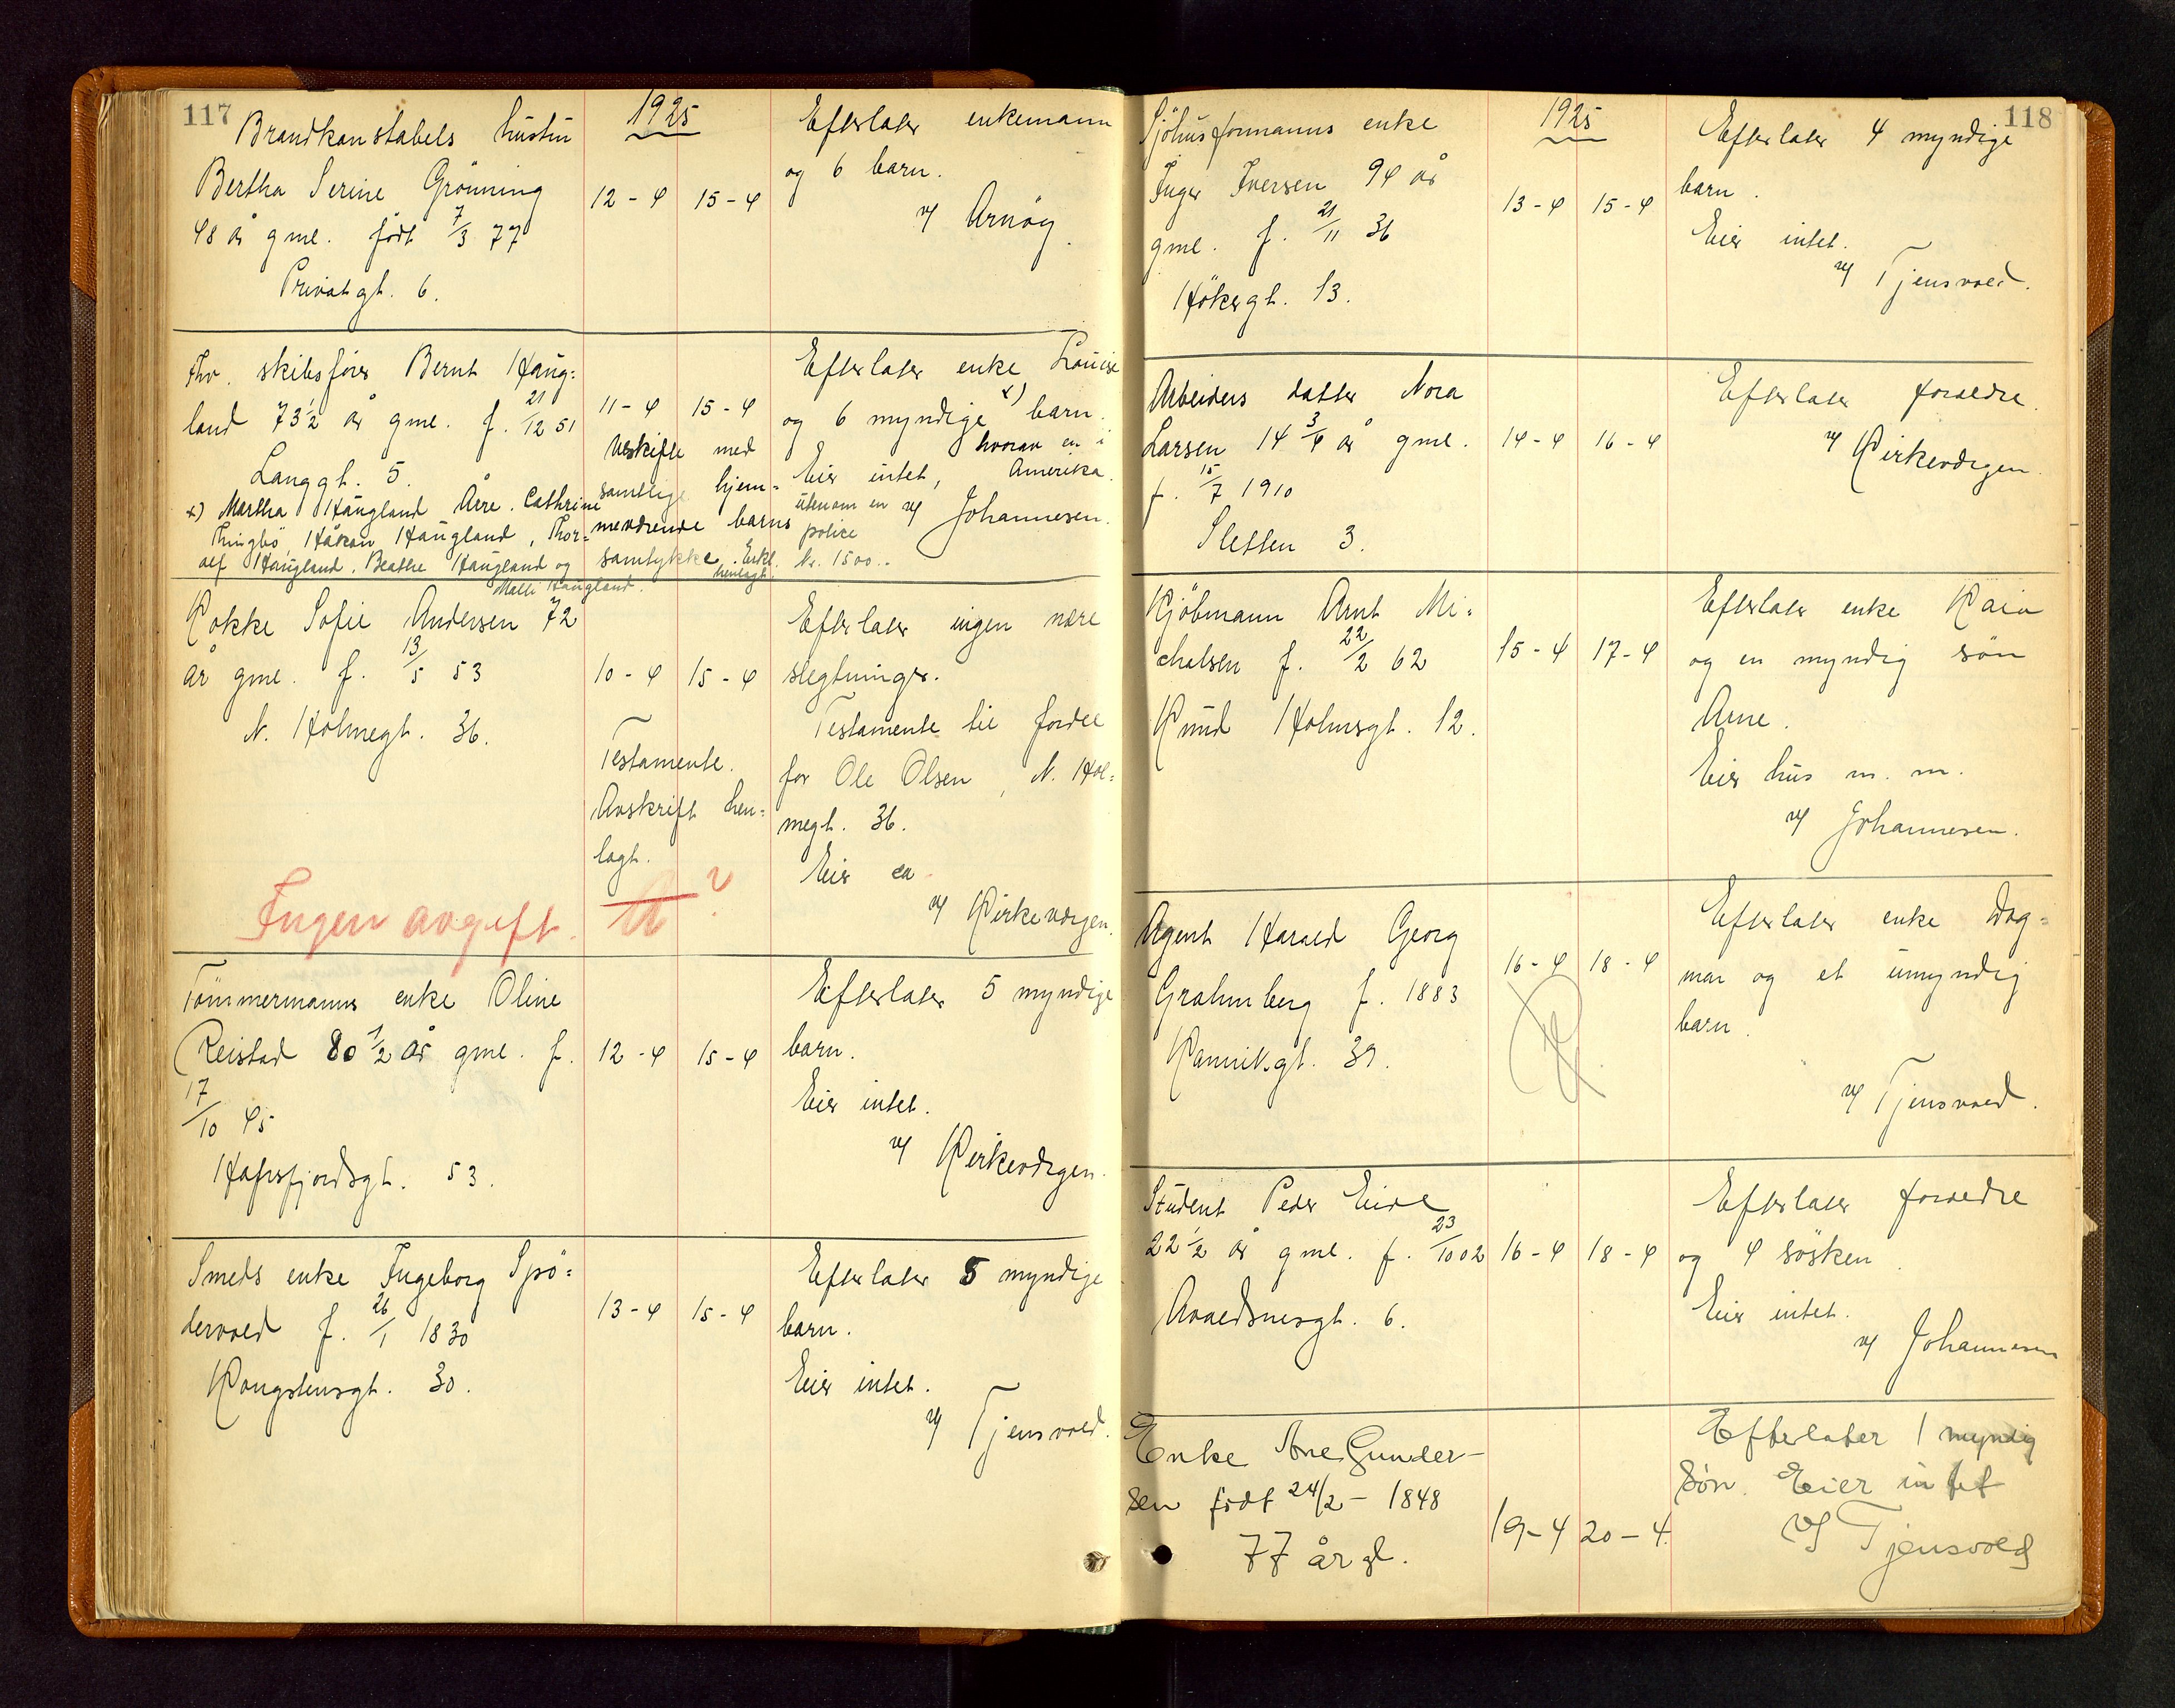 117
1925
Brandkonstabels hustru
Bertha Serine Grönning
48 år gml. født 7/3 77
Privatgt. 6.
12 - 4 15 - 4
Efterlater enkemann
og 6 barn.
v/ Arnöy.
Fhv. skibsfører Bernt Haug=
land 73 1/2 år gml. f. 21/12 51
Langgt. 5.
x) Martha Haugland Årre. Cathrine
Thingbö, Håkon Haugland, Thor=
olf Haugland. Beathe Haugland og
Malli Haugland.
11 - 4 15 - 4
Uskifte med
samtlige hjem=
meværende barns
samtykke. Erkl.
henlagt.
Efterlater enke Louise
og 6 myndige x) barn.
hvorav en i
Amerika.
Eier intet,
utenom en
police
kr. 1500..
v/ Johannesen.
Kokke Sofie Andersen 72
år gml. f. 13/5 53
N. Holmegt. 36.
10 - 4 15 - 4
Testamente.
Avskrift hen=
lagt.
Ingen avgift.
A ?
Efterlater ingen nære
slegtninger.
Testamente til fordel
for Ole Olsen, N. Hol=
megt. 36.
Eier ca
v/ Kirkevergen.
Tömmermanns enke Oline
Reistad 80 1/2 år gml. f.
17/10 45
Hafrsfjordsgt. 53.
12 - 4 15 - 4
Efterlater 5 myndige
barn.
Eier intet.
v/ Kirkevergen.
Smeds enke Ingeborg Spö=
dervold f. 26/1 1830
Kongstensgt. 30.
13 - 4 15 - 4
Efterlater 5 myndige
barn.
Eier intet.
v/ Tjensvold.
118
1925
Sjöhusformanns enke
Inger Iversen 94 år
gml. f. 21/11 36
Hökergt. 13.
13 - 4 15 - 4
Efterlater 4 myndige
barn.
Eier intet.
v/ Tjensvold.
Arbeiders datter Nora
Larsen 14 3/4 år gml.
f. 15/7 1910
Sletten 3.
14 - 4 16 - 4
Efterlater foreldre.
v/ Kirkevergen.
Kjöbmann Arnt Mi=
chalsen f. 22/2 62
Knud Holmsgt. 12.
15 - 4 17 - 4
Efterlater enke Kaia
og en myndig sön
Arne.
Eier hus m. m.
v/ Johannesen.
Agent Harald Georg
Grahmberg f. 1883
Kannikgt. 39.
16 - 4 18 - 4
Efterlater enke Dag=
mar og et umyndig
barn.
v/ Tjensvold.
Student Peder Eide
22 1/2 år gml. f. 23/10 02
Avaldsnesgt. 6.
16 - 4 18 - 4
Efterlater foreldre
og 4 sösken.
Eier intet.
v/ Johannesen
Enke Ane Gunder-
sen født 24/2 - 1848
77 år gl.
19 - 4 20 - 4.
Efterlater 1 myndig
sön. Eier intet
v/ Tjensvold